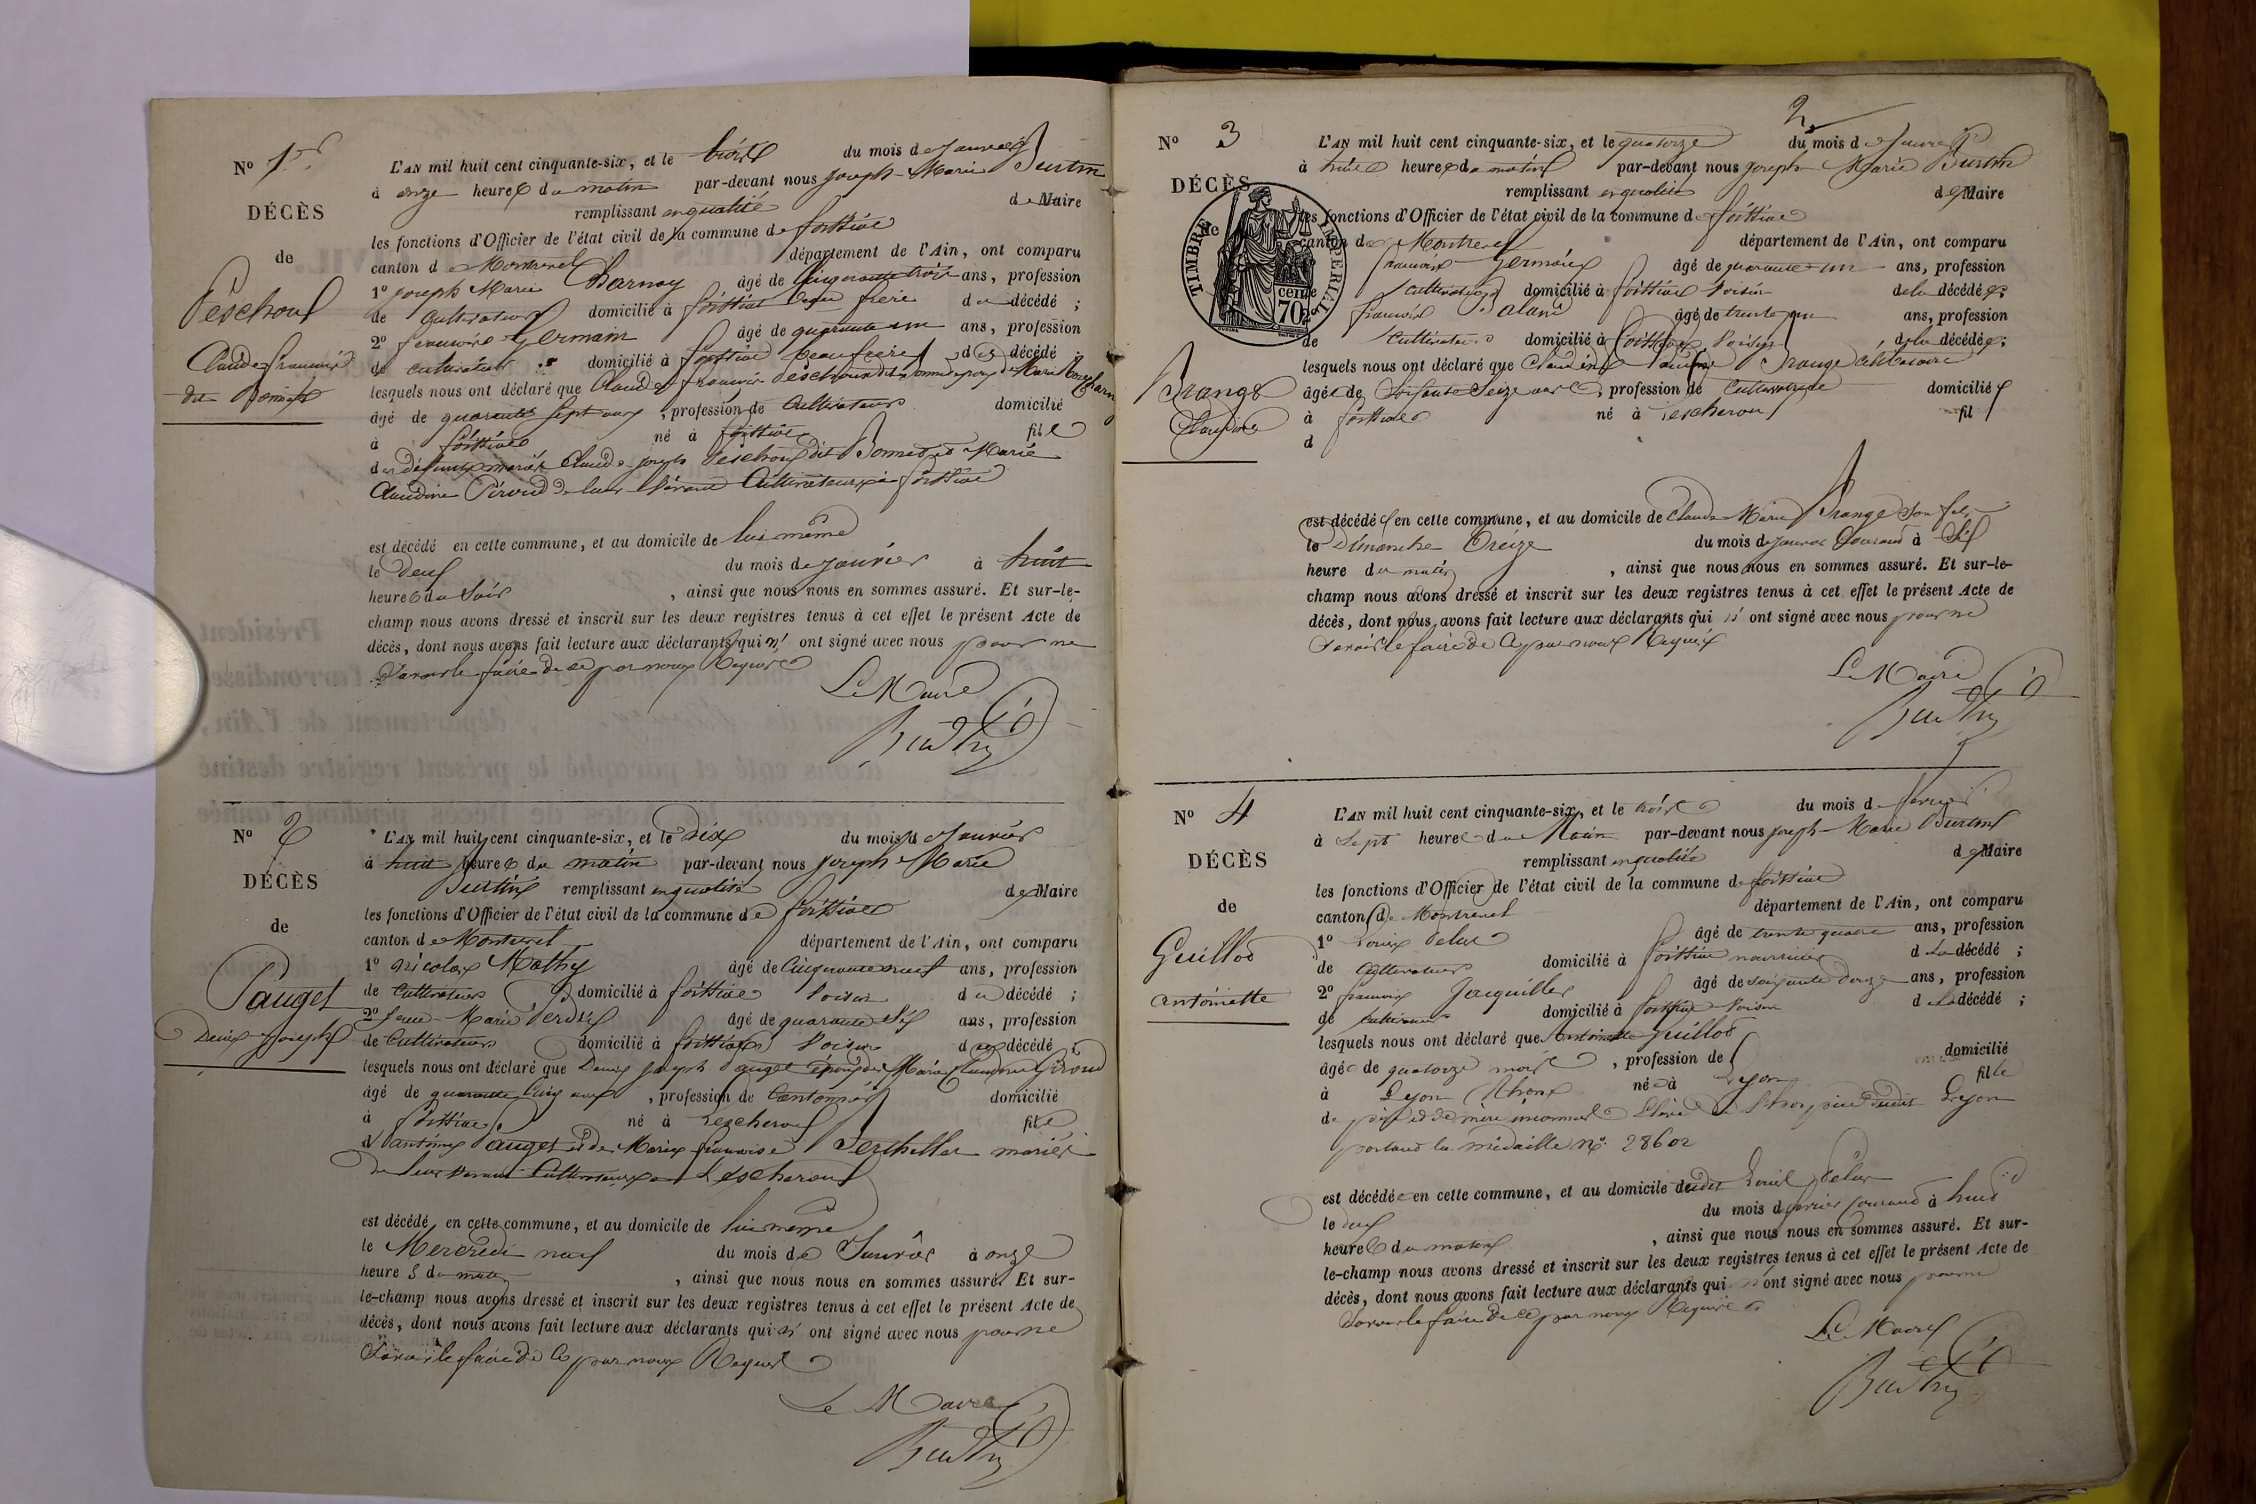 N° 1er
DÉCÈS
de
Peschoul
Claude françois
dit Bonnet
L'AN mil huit cent cinquante-six, et le trois du mois de Janvier
à onze heures du matin par-devant nous joseph-Marie Burtin
remplissant en qualité de Maire
les fonctions d'Officier de l'état civil de la commune de foissiat
canton de Montrevel département de l'Ain, ont comparu
1° joseph Marie Charnay âgé de Cinquante trois ans, profession
de Cultivateur domicilié à foissiat beau frere du décédé ;
2° francois Germain âgé de quarante un ans, profession
de cultivateur domicilié à foissiat beau frere du décédé
lesquels nous ont déclaré que Claude françois Peschoul dit Bonnet époux de Marie
âgé de quarante sept ans, profession de Cultivateur domicilié
à foissiat né à foissiat fils
des défunts mariés Claude joseph Peschoul dit Bonnet et Marie
Claudine Péroud de leur vivant Cultivateurs à foissiat
est décédé en cette commune, et au domicile de lui même
le deux du mois de janvier à huit
heures du soir, ainsi que nous nous en sommes assuré. Et sur-le-
champ nous avons dressé et inscrit sur les deux registres tenus à cet effet le présent Acte de
décès, dont nous avons fait lecture aux déclarants qui n'ont signé avec nous pour ne
savoir le faire de ce par nous Requis
Le Maire
Burtin
N° 2
DÉCÈS
de
Pauget
Denis Joseph
L'AN mil huit cent cinquante-six, et le Dix du mois de Janvier
à huit heures du matin par-devant nous joseph Marie
Burtin remplissant en qualité de Maire
les fonctions d'Officier de l'état civil de la commune de foissiat
canton de Montrevel département de l'Ain, ont comparu
1° Nicolas Mathy âgé de Cinquante neuf ans, profession
de Cultivateur domicilié à foissiat Voisin du décédé ;
2° Marie âgé de quarante six ans, profession
de Cultivateur domicilié à foissiat Voisin du décédé ;
lesquels nous ont déclaré que Denis joseph Pauget époux de Marie Claudine Giroud
âgé de quarante Cinq ans, profession de Cantonnier domicilié
à foissiat né à Lescheroux fils
d'antoine Pauget et de Marie françoise Perthillier mariés
de leur vivant Cultivateurs à Lescheroux
est décédé en cette commune, et au domicile de lui même
le Mercredi neuf du mois de Janvier à onze
heures du matin, ainsi que nous nous en sommes assuré. Et sur-
le-champ nous avons dressé et inscrit sur les deux registres tenus à cet effet le présent Acte de
décès, dont nous avons fait lecture aux déclarants qui n'ont signé avec nous pour ne
savoir le faire de ce par nous Requis
Le Maire
Burtin
2
N° 3
DÉCÈS
de
Prange
Claudine
TIMBRE IMPERIAL
70 cent
L'AN mil huit cent cinquante-six, et le quatorze du mois de Janvier
à huit heures du matin par-devant nous joseph Marie Burtin
remplissant en qualité de Maire
les fonctions d'Officier de l'état civil de la commune de foissiat
canton de Montrevel département de l'Ain, ont comparu
francois Germain âgé de quarante un ans, profession
cultivateur domicilié à foissiat Voisin de la décédée ;
francois âgé de trente un ans, profession
de cultivateur domicilié à foissiat Voisin de la décédée ;
lesquels nous ont déclaré que Claudine Prange Célibataire
âgée de Soixante Seize ans, profession de Cultivatrice domiciliée
à foissiat né à Lescheroux fil
d
est décédée en cette commune, et au domicile de Claude Marie Prange son fils
le Dimanche treize du mois de janvier Courant à Six
heure du matin, ainsi que nous nous en sommes assuré. Et sur-le-
champ nous avons dressé et inscrit sur les deux registres tenus à cet effet le présent Acte de
décès, dont nous avons fait lecture aux déclarants qui n'ont signé avec nous pour ne
savoir le faire de ce par nous Requis
Le Maire
Burtin
N° 4
DÉCÈS
de
Guillod
antoinette
L'AN mil huit cent cinquante-six, et le trois du mois de fevrier
à Sept heures du Matin par-devant nous joseph-Marie Burtin
remplissant en qualité de Maire
les fonctions d'Officier de l'état civil de la commune de foissiat
canton de Montrevel département de l'Ain, ont comparu
1° Louis Velut âgé de trente quatre ans, profession
de cultivateur domicilié à foissiat nourricier de la décédé ;
2° francois Jacquillet âgé de soixante douze ans, profession
de cultivateur domicilié à foissiat Voisin de la décédé ;
lesquels nous ont déclaré que antoinette Guillod
âgée de quatorze mois, profession de domicilié
à Lyon Rhone née à Lyon fille
de père et de mère inconnus Elève de l'hospice dudit Lyon
portant la médaille N° 28602
est décédée en cette commune, et au domicile dudit Louis Velut
le deux du mois de fevrier courant à huit
heures du matin, ainsi que nous nous en sommes assuré. Et sur-
le-champ nous avons dressé et inscrit sur les deux registres tenus à cet effet le présent Acte de
décès, dont nous avons fait lecture aux déclarants qui n'ont signé avec nous pour ne
savoir le faire de ce par nous Requis
Le Maire
Burtin